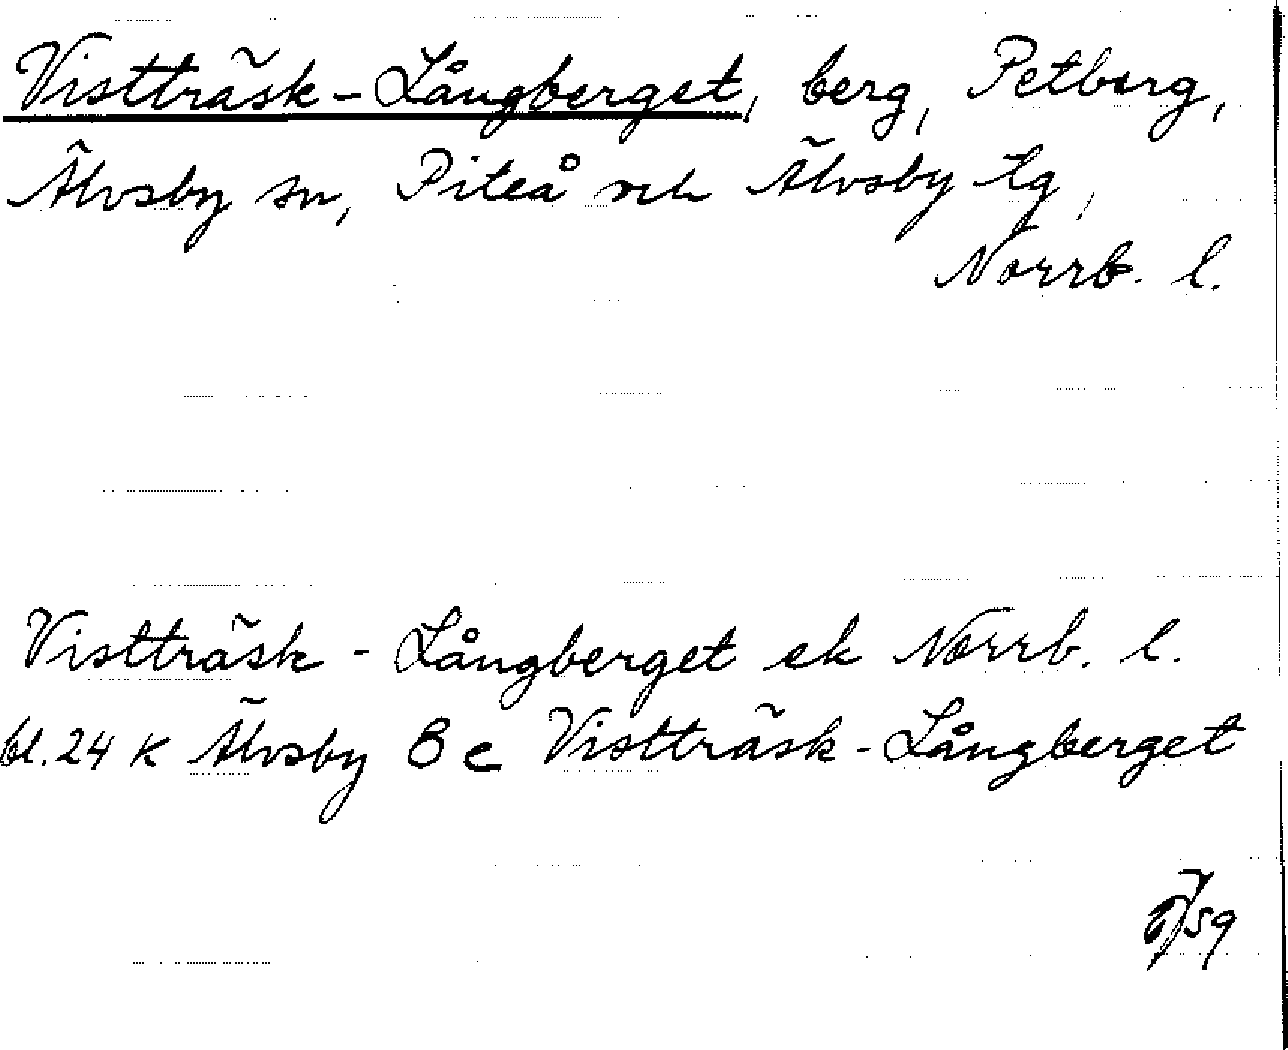 Vistträsk-Långberget, berg, Petberg,
Älvsby sn, Piteå och Älvsby tg,
Norrb. l.
Vistträsk-Långberget ek Norrb. l.
bl. 24 K Älvsby 8 c Vistträsk-Långberget
/59